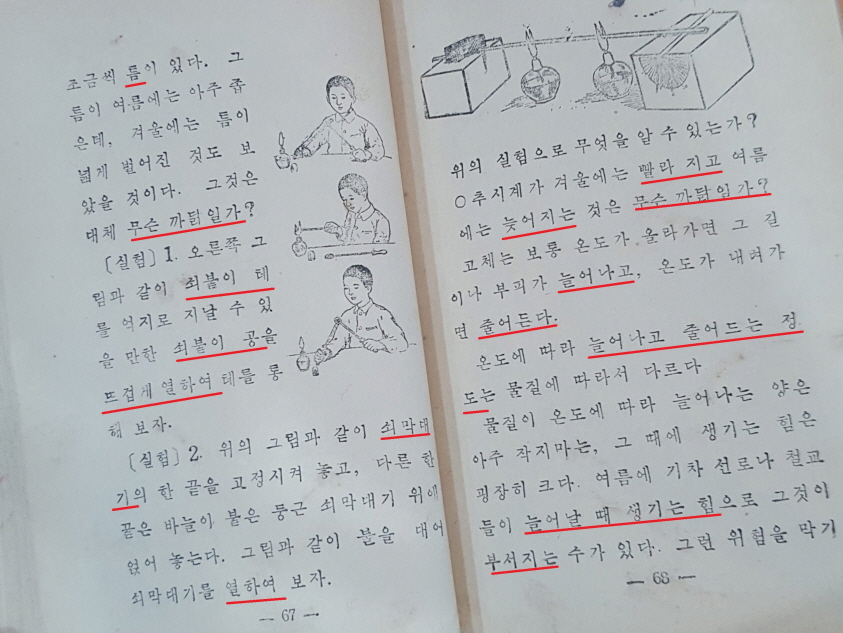 조금씩 틈이 있다. 그
틈이 여름에는 아주 좁
은데, 겨울에는 틈이
넓게 벌어진 것도 보
았을 것이다. 그것은
대체 무슨 까닭일가?
〔실험〕 1. 오른쪽 그
림과 같이 쇠붙이 테
를 억지로 지날 수 있
을 만한 쇠붙이 공을
뜨겁게 열하여 테를 통
해 보자.
〔실험〕 2. 위의 그림과 같이 쇠막대
기의 한 끝을 고정시켜 놓고, 다른 한
끝은 바늘이 붙은 둥근 쇠막대기 위에
얹어 놓는다. 그림과 같이 불을 대어
쇠막대기를 열하여 보자.
— 67 —
위의 실험으로 무엇을 알 수 있는가?
○추시계가 겨울에는 빨라 지고 여름
에는 늦어지는 것은 무슨 까닭일가?
고체는 보통 온도가 올라가면 그 길
이나 부피가 늘어나고, 온도가 내려가
면 줄어든다.
온도에 따라 늘어나고 줄어드는 정
도는 물질에 따라서 다르다
물질이 온도에 따라 늘어나는 양은
아주 작지마는, 그 때에 생기는 힘은
굉장히 크다. 여름에 기차 선로나 철교
들이 늘어날 때 생기는 힘으로 그것이
부서지는 수가 있다. 그런 위험을 막기
— 68 —